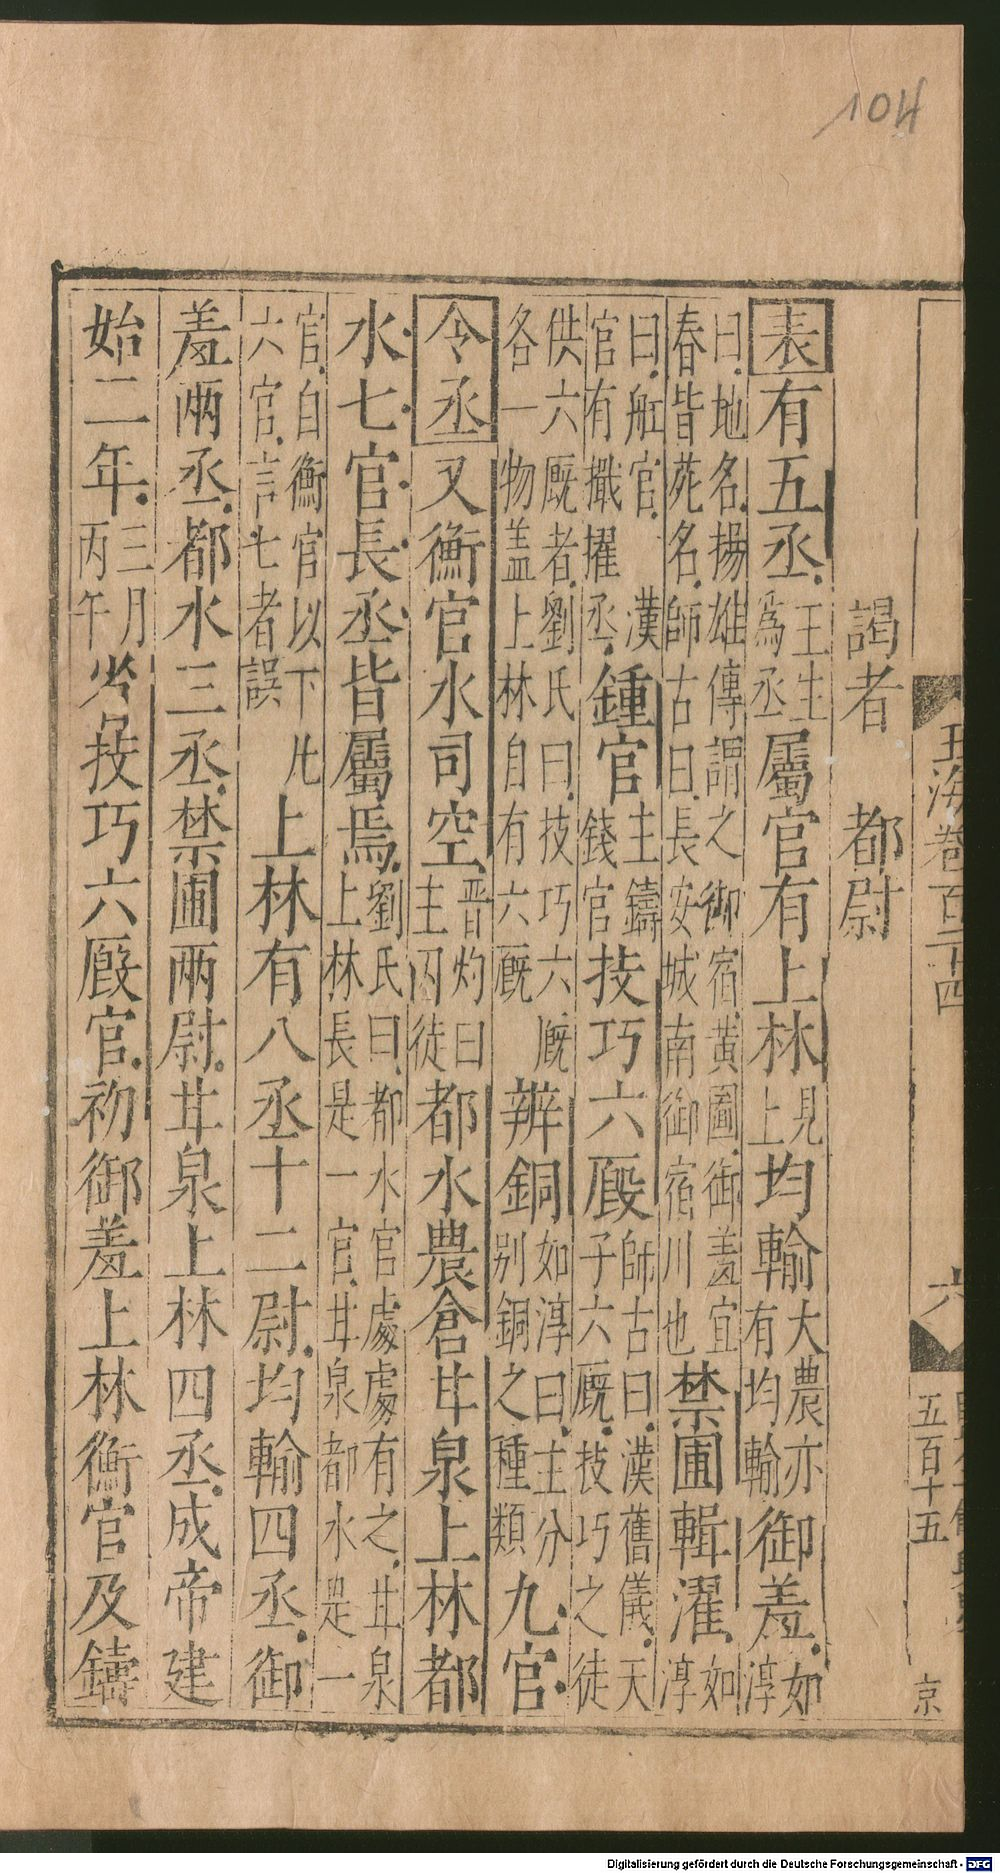 104
玉海卷百二十四
六
五百十五
京
謁者　都尉
表有五丞王生爲丞屬官有上林見上均輸大農亦有均輸御羞如淳
曰地名揚雄傳謂之御宿黃圖御羞宜春皆苑名師古曰長安城南御宿川也禁圃輯濯如淳
曰舡官漢官有檝擢丞鍾官主鑄錢官技巧六廄師古曰漢舊儀天子六廄技巧之徒
供六廄者劉氏曰技巧六廄各一物盖上林自有六廄辨銅如淳曰主分别銅之種類九官
令丞又衡官水司空晋灼曰主囚徒都水農倉甘泉上林都
水七官長丞皆屬焉劉氏曰都水官處處有之甘泉上林長是一官甘泉都水是一
官自衡官以下凡六官言七者誤上林有八丞十二尉均輸四丞御
羞兩丞都水三丞禁圃兩尉甘泉上林四丞成帝建
始二年三月丙午省技巧六廄官初御羞上林衡官及鑄
Digitalisierung gefördert durch die Deutsche Forschungsgemeinschaft - DFG